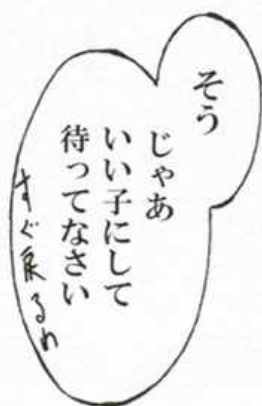 そう
じゃあ
いい子にして
待ってなさい
すぐ戻るわ